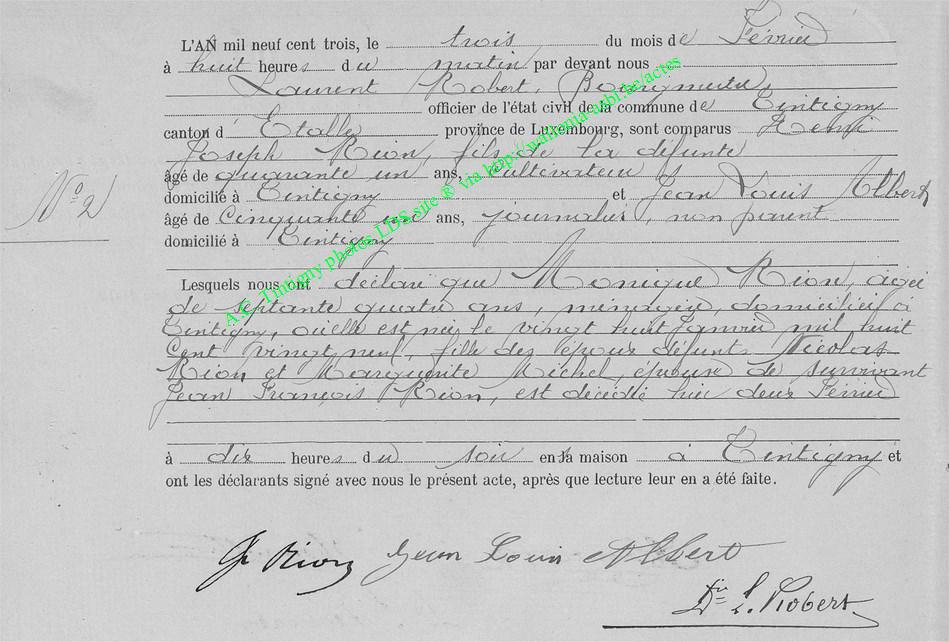 L'AN mil neuf cent trois, le trois du mois de Février
à huit heures du matin par devant nous
Laurent Robert, Bourgmestre,
officier de l'état civil de la commune de Tintigny
canton d'Etalle province de Luxembourg, sont comparus Henri
Joseph Rion, fils de la défunte
âgé de quarante un ans, cultivateur
domicilié à Tintigny et Jean Louis Albert
âgé de Cinquante un ans, journalier, non parent
domicilié à Tintigny
N° 2
Lesquels nous ont déclaré que Monique Rion, agée
de septante quatre ans, ménagère, domiciliée à
Tintigny, où elle est née le vingt huit janvier mil huit
Cent vingt neuf, fille des époux défunts Nicolas
Rion et Marguerite Michel, épouse de survivant
Jean François Rion, est décédée hier deux Février
à dix heures du soir en sa maison à Tintigny et
ont les déclarants signé avec nous le présent acte, après que lecture leur en a été faite.
Rion Jean Louis Albert
Dr L. Robert
A.C. Tintigny photos LDS site ® via http://wallonia-asbl.be/actes